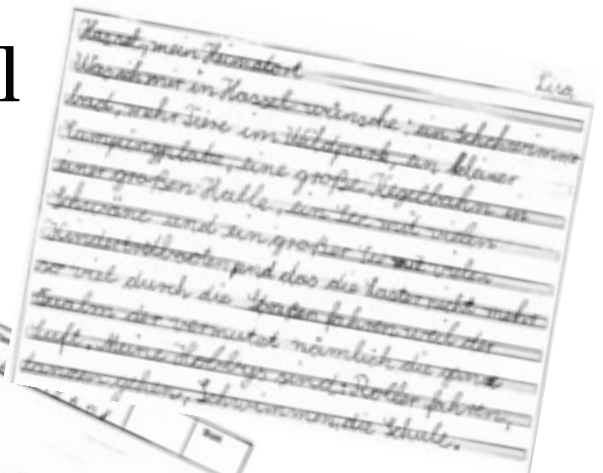 l
Hassel, mein Heimatort
Lisa
Was ich mir in Hassel wünsche: ein Schwimm
bad, mehr Tiere im Waldpark, ein kleiner
Campingplatz, eine große Kegelbahn in
einer großen Halle, ein See mit vielen
Schwäne und ein großer See mit vielen
und das die Laster nicht mehr
so viel durch die Straßen fahren weil der
der vermutzt nämlich die ganze
Luft. Meine Hobbys sind: Roller fahren,
tanzen gehen, Schwimmen, die Schule.